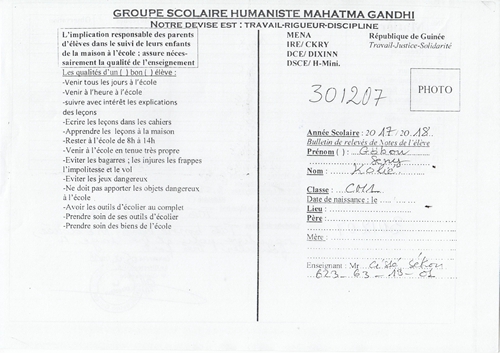 GROUPE SCOLAIRE HUMANISTE MAHATMA GANDHI
NOTRE DEVISE EST : TRAVAIL-RIGUEUR-DISCIPLINE
L'implication responsable des parents
d'élèves dans le suivi de leurs enfants
de la maison à l'école : assure néces-
sairement la qualité de l'enseignement
Les qualités d'un ( ) bon ( ) élève :
-Venir tous les jours à l'école
-Venir à l'heure à l'école
-suivre avec intérêt les explications
des leçons
-Ecrire les leçons dans les cahiers
-Apprendre les leçons à la maison
-Rester à l'école de 8h à 14h
-Venir à l'école en tenue très propre
-Eviter les bagarres ; les injures les frappes
l'impolitesse et le vol
-Eviter les jeux dangereux
-Ne doit pas apporter les objets dangereux
à l'école
-Avoir les outils d'écolier au complet
-Prendre soin de ses outils d'écolier
-Prendre soin des biens de l'école
MENA
République de Guinée
IRE/ CKRY
Travail-Justice-Solidarité
DCE/ DIXINN
DSCE/ H-Mini.
301207
PHOTO
Année Scolaire : 2017/2018
Bulletin de relevés de Notes de l'élève
Prénom ( ) :
Nom :
Classe : CM1
Date de naissance : le
Lieu :
Père :
Mère :
Enseignant : Mr
623-63-19-01